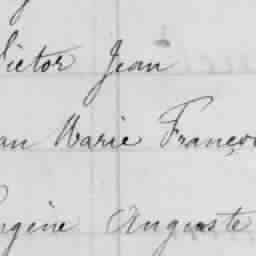 Victor Jean
Jean Marie François
Eugène Auguste